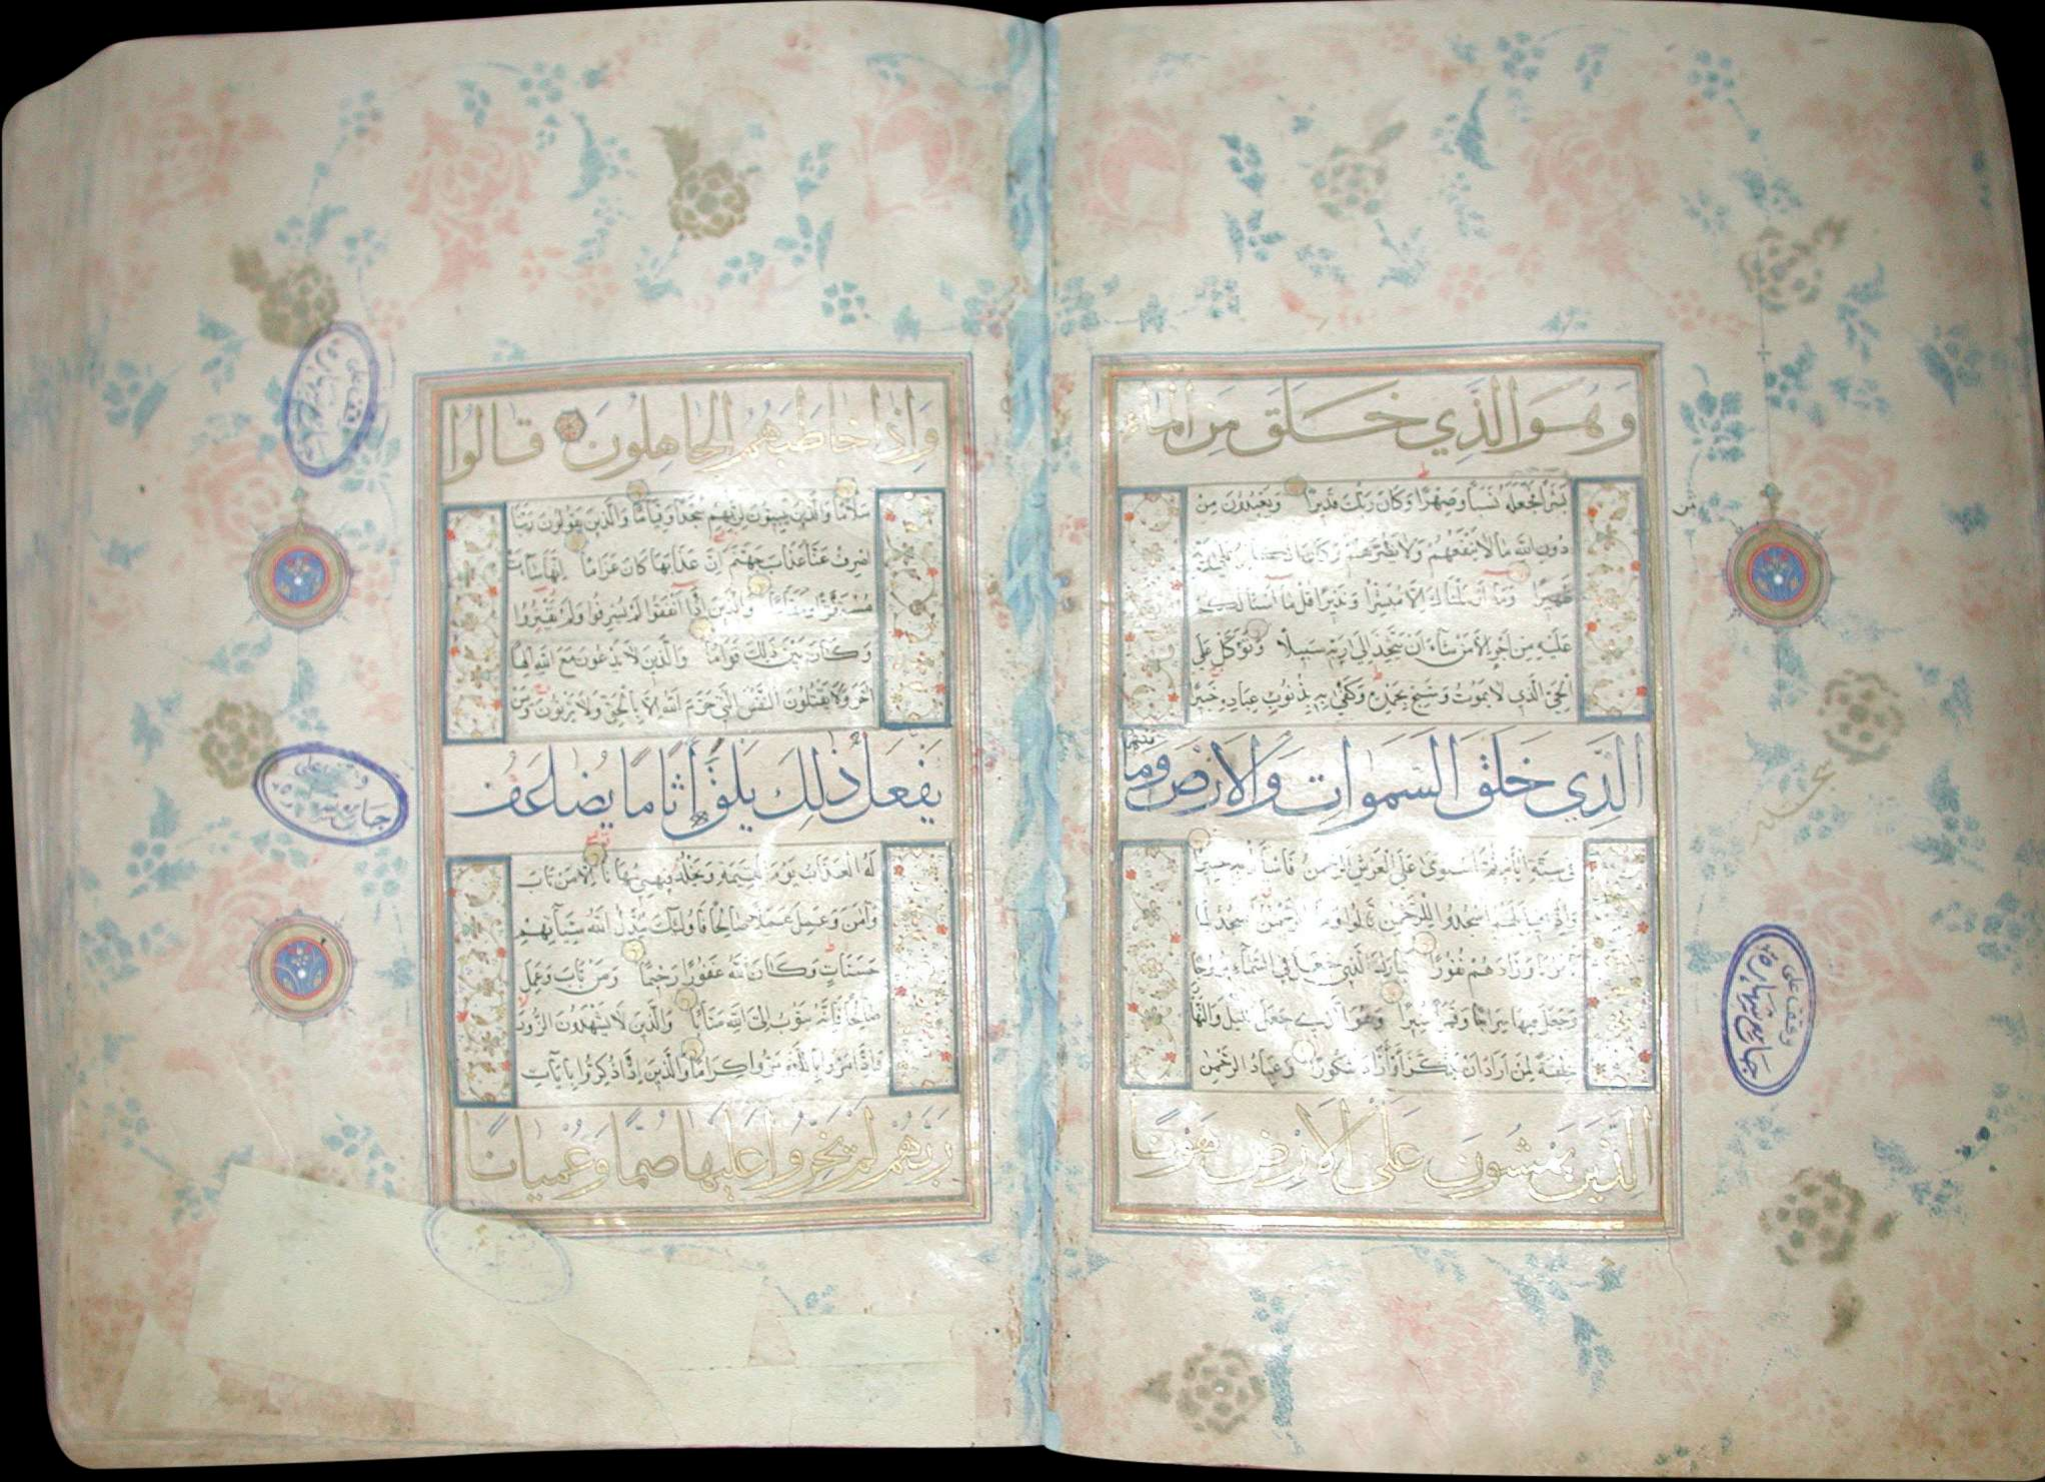 وَهُوَ الَّذِي خَلَقَ مِنَ الْمَاءِ
بَشَرًا فَجَعَلَهُ نَسَبًا وَصِهْرًا وَكَانَ رَبُّكَ قَدِيرًا وَيَعْبُدُونَ مِنْ
دُونِ اللَّهِ مَا لَا يَنْفَعُهُمْ وَلَا يَضُرُّهُمْ وَكَانَ الْكَافِرُ عَلَى رَبِّهِ
ظَهِيرًا وَمَا أَرْسَلْنَاكَ إِلَّا مُبَشِّرًا وَنَذِيرًا قُلْ مَا أَسْأَلُكُمْ
عَلَيْهِ مِنْ أَجْرٍ إِلَّا مَنْ شَاءَ أَنْ يَتَّخِذَ إِلَى رَبِّهِ سَبِيلًا وَتَوَكَّلْ عَلَى
الْحَيِّ الَّذِي لَا يَمُوتُ وَسَبِّحْ بِحَمْدِهِ وَكَفَى بِهِ بِذُنُوبِ عِبَادِهِ خَبِيرًا
الَّذِي خَلَقَ السَّمَوَاتِ وَالْأَرْضَ وَمَا بَيْنَهُمَا
فِي سِتَّةِ أَيَّامٍ ثُمَّ اسْتَوَى عَلَى الْعَرْشِ الرَّحْمَنُ فَاسْأَلْ بِهِ خَبِيرًا
وَإِذَا قِيلَ لَهُمُ اسْجُدُوا لِلرَّحْمَنِ قَالُوا وَمَا الرَّحْمَنُ أَنَسْجُدُ لِمَا
تَأْمُرُنَا وَزَادَهُمْ نُفُورًا تَبَارَكَ الَّذِي جَعَلَ فِي السَّمَاءِ بُرُوجًا
وَجَعَلَ فِيهَا سِرَاجًا وَقَمَرًا مُنِيرًا وَهُوَ الَّذِي جَعَلَ اللَّيْلَ وَالنَّهَارَ
خِلْفَةً لِمَنْ أَرَادَ أَنْ يَذَّكَّرَ أَوْ أَرَادَ شُكُورًا وَعِبَادُ الرَّحْمَنِ
الَّذِينَ يَمْشُونَ عَلَى الْأَرْضِ هَوْنًا
وَإِذَا خَاطَبَهُمُ الْجَاهِلُونَ قَالُوا
سَلَامًا وَالَّذِينَ يَبِيتُونَ لِرَبِّهِمْ سُجَّدًا وَقِيَامًا وَالَّذِينَ يَقُولُونَ رَبَّنَا
اصْرِفْ عَنَّا عَذَابَ جَهَنَّمَ إِنَّ عَذَابَهَا كَانَ غَرَامًا إِنَّهَا سَاءَتْ
مُسْتَقَرًّا وَمُقَامًا وَالَّذِينَ إِذَا أَنْفَقُوا لَمْ يُسْرِفُوا وَلَمْ يَقْتُرُوا
وَكَانَ بَيْنَ ذَلِكَ قَوَامًا وَالَّذِينَ لَا يَدْعُونَ مَعَ اللَّهِ إِلَهًا
آخَرَ وَلَا يَقْتُلُونَ النَّفْسَ الَّتِي حَرَّمَ اللَّهُ إِلَّا بِالْحَقِّ وَلَا يَزْنُونَ وَمَنْ
يَفْعَلْ ذَلِكَ يَلْقَ أَثَامًا يُضَاعَفْ
لَهُ الْعَذَابُ يَوْمَ الْقِيَمَةِ وَيَخْلُدْ فِيهِ مُهَانًا إِلَّا مَنْ تَابَ
وَآمَنَ وَعَمِلَ عَمَلًا صَالِحًا فَأُولَئِكَ يُبَدِّلُ اللَّهُ سَيِّئَاتِهِمْ
حَسَنَاتٍ وَكَانَ اللَّهُ غَفُورًا رَحِيمًا وَمَنْ تَابَ وَعَمِلَ
صَالِحًا فَإِنَّهُ يَتُوبُ إِلَى اللَّهِ مَتَابًا وَالَّذِينَ لَا يَشْهَدُونَ الزُّورَ
وَإِذَا مَرُّوا بِاللَّغْوِ مَرُّوا كِرَامًا وَالَّذِينَ إِذَا ذُكِّرُوا بِآيَاتِ
رَبِّهِمْ لَمْ يَخِرُّوا عَلَيْهَا صُمًّا وَعُمْيَانًا
سجده
وقف على
وقف على